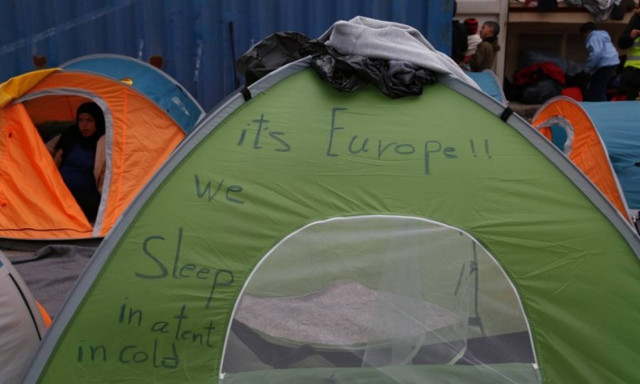 its Europe !!
we
Sleep
in a tent
in cold